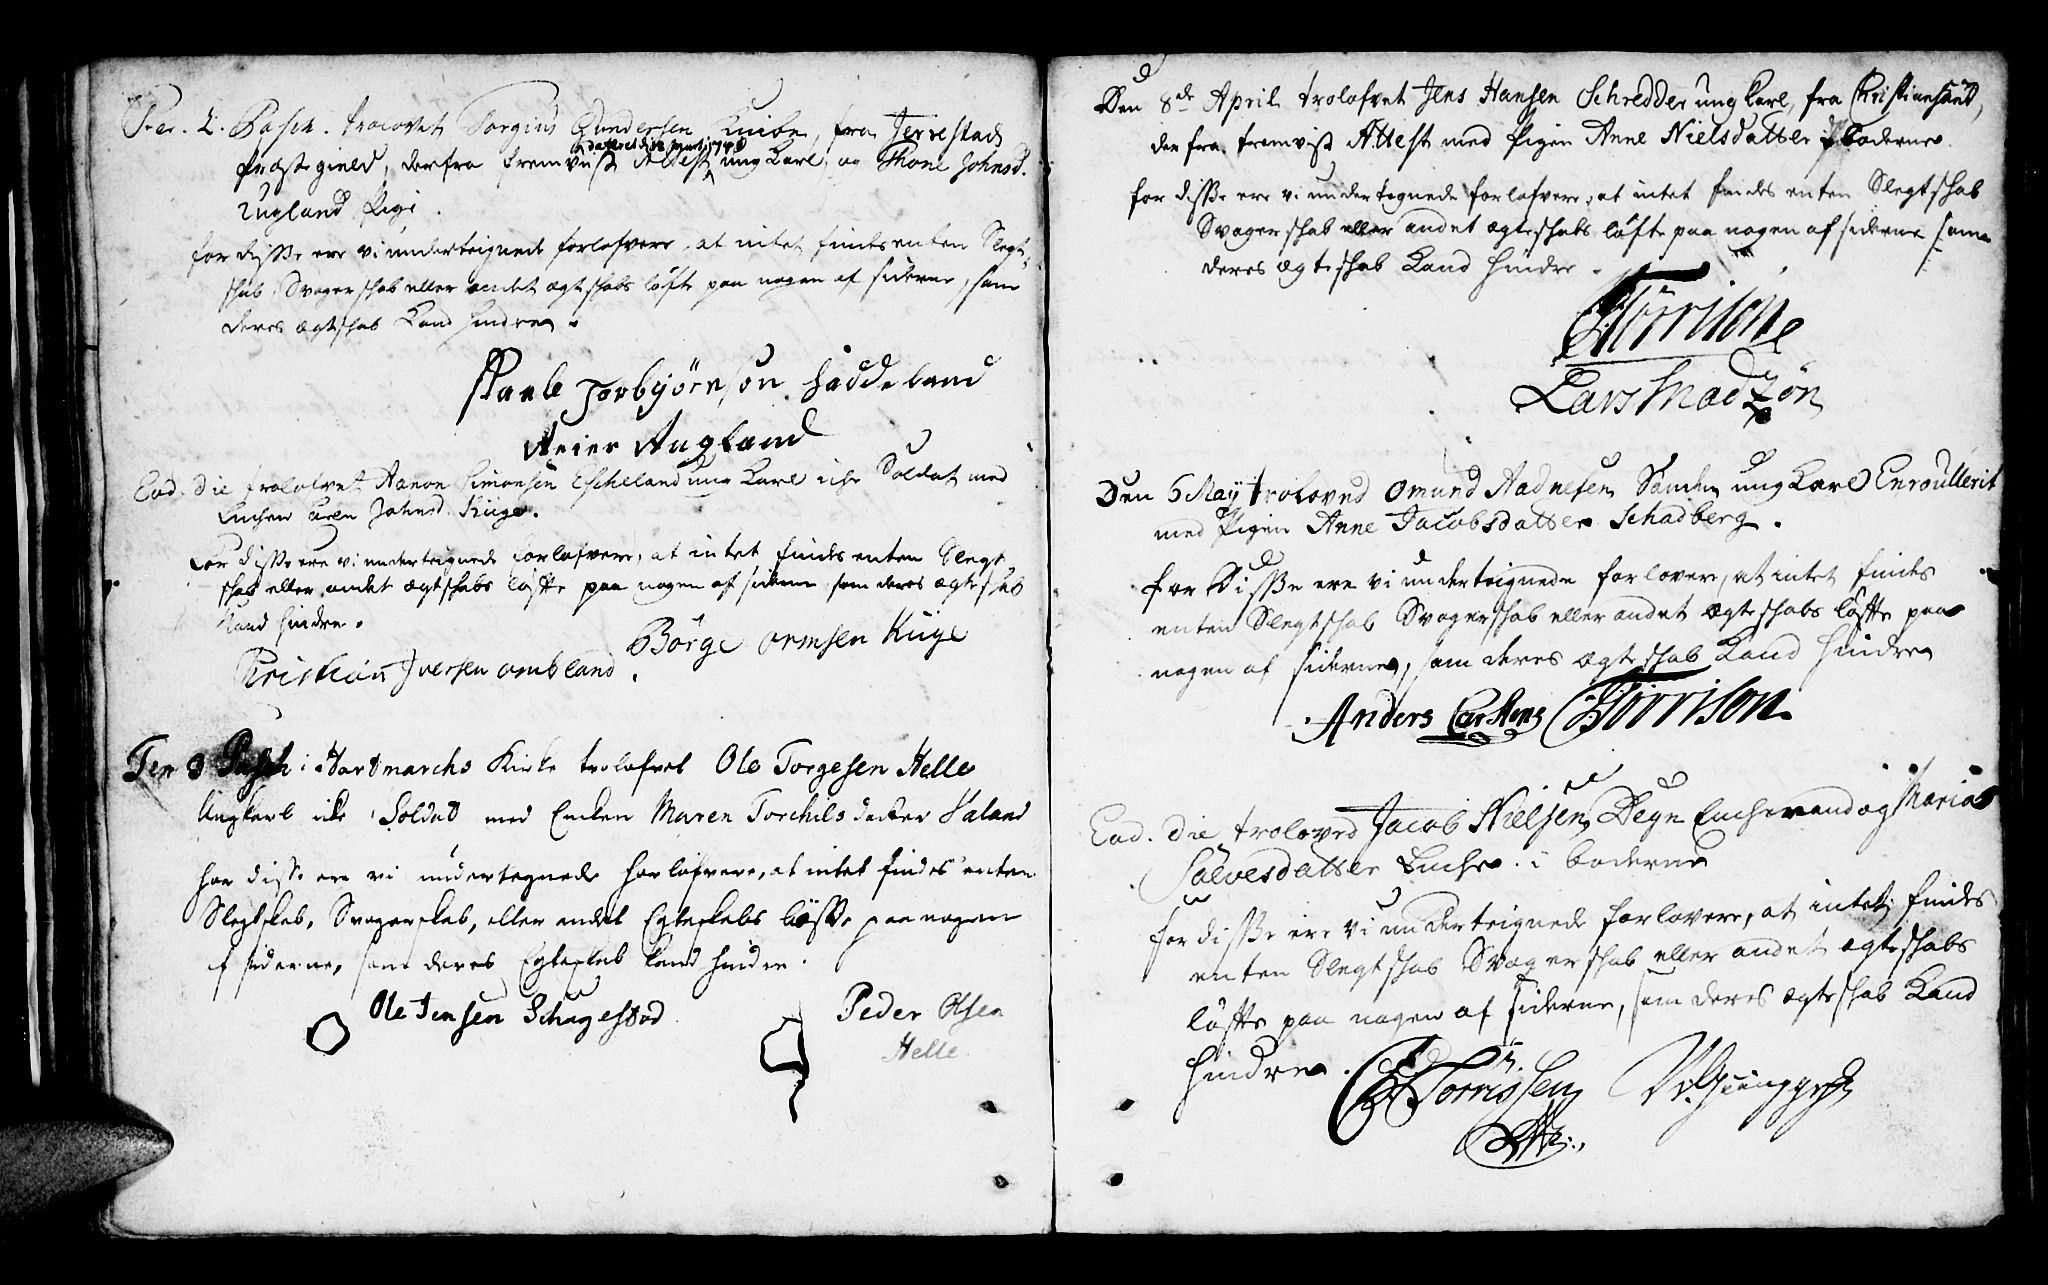 Fer. 2. Pasch. trolovet Torgius Gundersen Knibe, fra Jerrestad
præstegield, derfra fremvist Attest ung Karl, og Thone Johnsd.
dateret d. 12 Mart: 1748
Ugland Pige.
for disse ere vi underteignede forlofvere, at intet findes enten Slegt-
skab, Svogerskab eller andet ægtskabs løfte paa nogen af siderne, som
deres ægtskab Kand hindre.
Torbjørnsøn haddeland
Reier Augland
Eod. die trolofvet Aanon Simonsen Escheland ung Karl iche Soldat med
Enchen Karen Johnsd. Kuge.
For disse ere vi undertegnede forlofvere, at intet findes enten Slegt
skab eller andet ægtskabs løfte paa nogen af siderne som deres ægteskab
Kand hindre.
Børge ormsen Kuge
Christian Iversen ombland.
Fer 3 Pasch i Hartmarchs Kirke trolofvet Ole Torgesen Helle
Ungkarl ike Soldat med Enken Maren Torchilsdatter Haland
for disse ere vi undertegnede forlofvere, at intet findes enten
Slegtskab, Svogerskab, eller andet Egteskabs løfte paa nogen
af siderne, som deres Egteskab kand hindre.
Ole Jensen Schagestad
Peder Olsen
Helle
Den 8de April trolofvet Jens Hansen Schredder ung Karl, fra Christiansand,
der fra fremvist Attest med Pigen Anne Nielsdatter i boderne.
for disse ere vi undertegnede forlofvere, at intet findes enten Slegtskab
Svogerskab eller andet ægteskabs løfte paa nogen af siderne som
deres ægteskab Kand hindre.
Tørrison
Lars Madzøn
Den 5 May troloved Omund Aadnesen Sanden ung Karl Enroullerit
med Pigen Anne Jacobsdatter Schadberg.
for Disse ere vi underteignede forlovere, at intet findes
enten Slegtskab Svogerskab eller andet ægteskabs løfte paa
nogen af siderne, som deres ægteskab Kand hindre
Anders Carstens Tørrison
Eod. die troloved Jacob Nielsen Degn Enchemand og Maria
Sølvesdatter Enche i boderne
for disse ere vi underteignede forlovere, at intet findes
enten Slegtskab Svogerskab eller andet ægteskabs
løfte paa nogen af siderne, som deres ægteskab Kand
hindre.
Tørrissen